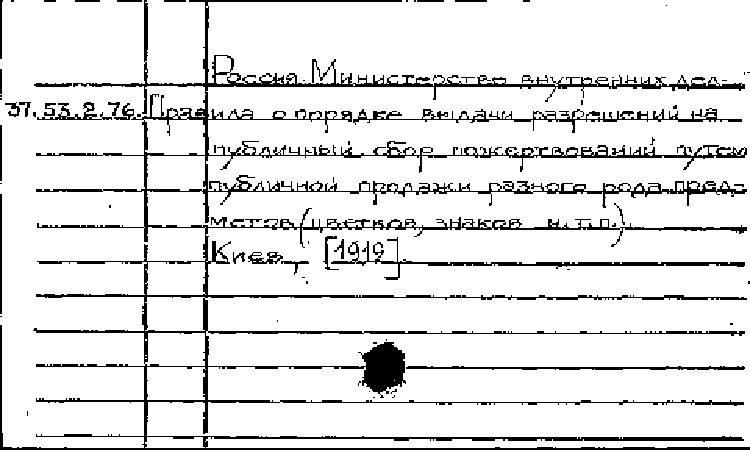 Россия Министерство внутренних дел.
37.53.2.76. Правила о порядке выдачи разрешений на
публичный сбор пожертвований путем
публичной продажи разного рода пред-
метов (цветков, знаков и.т.п.)
Киев, [1919].